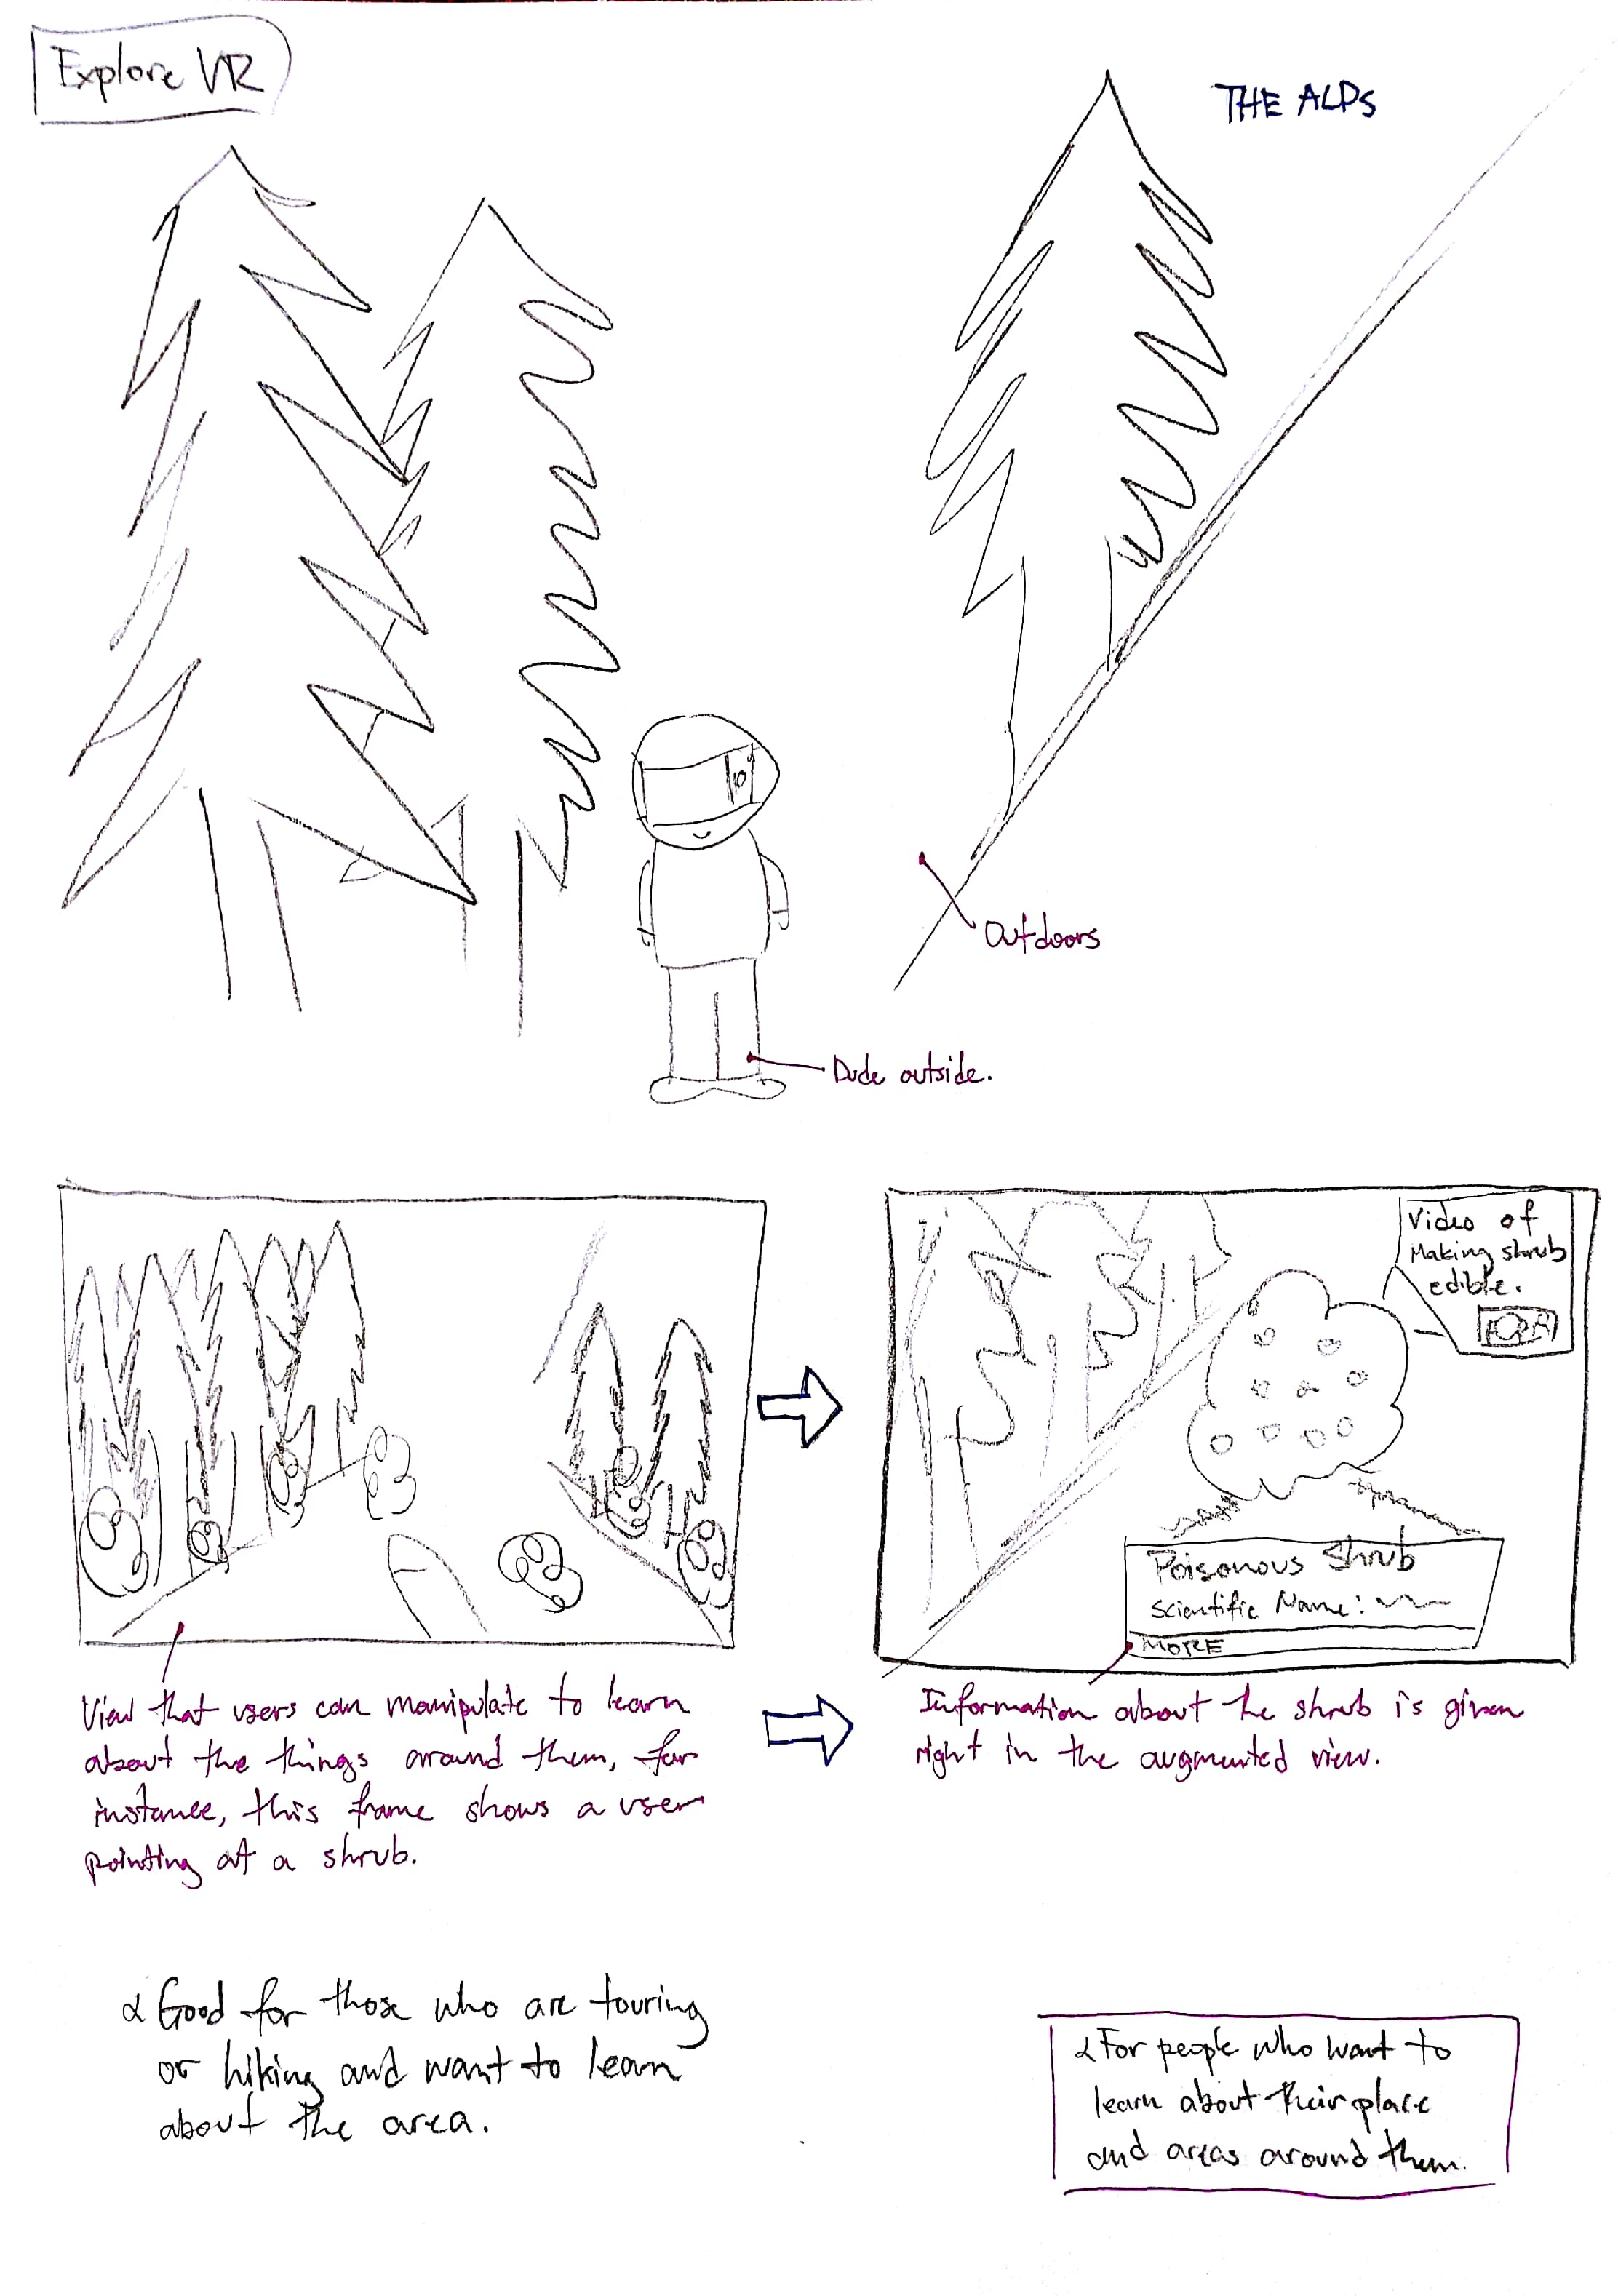 Explore VR
THE ALPS
Outdoors
Dude outside.
Video of
Making shrub
edible.
Poisonous Shrub
Scientific Name:
MORE
View that users can manipulate to learn
about the things around them, for
instance, this frame shows a user
pointing at a shrub.
Information about the shrub is given
right in the augmented view.
Good for those who are touring
or hiking and want to learn
about the area.
For people who want to
learn about their place
and areas around them.